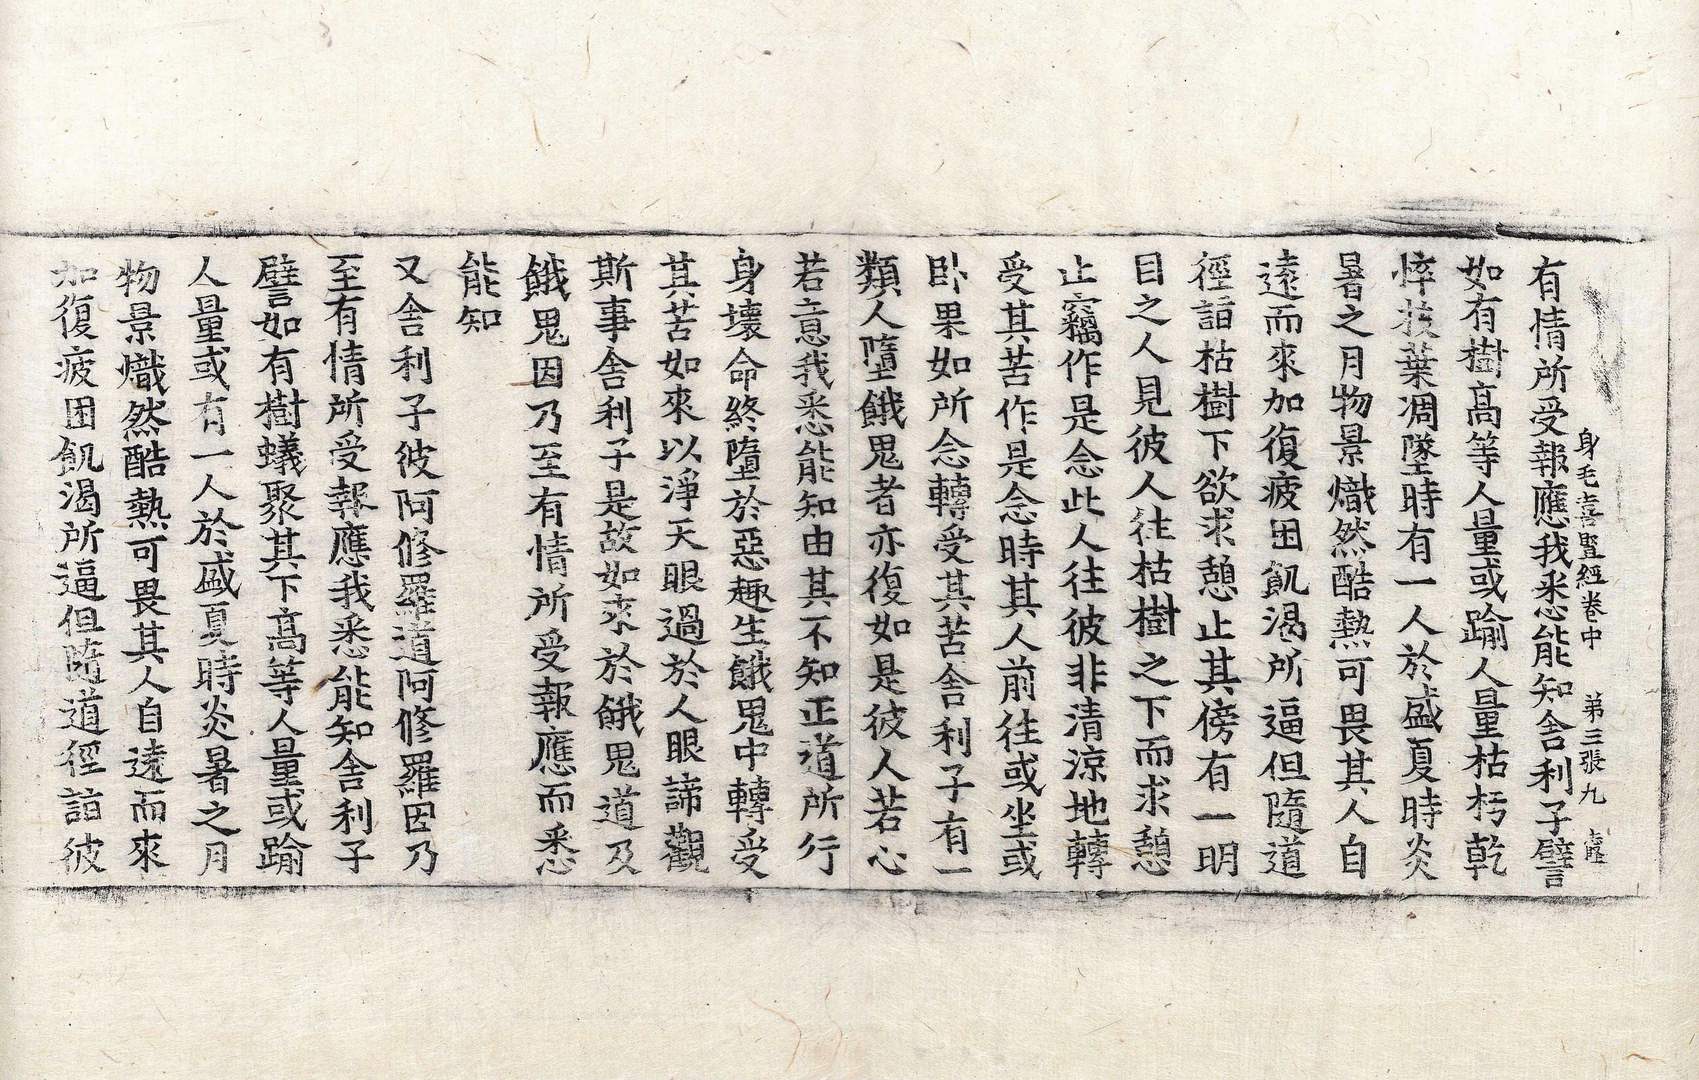 身毛喜豎經卷中 第三張 九
有情所受報應我悉能知舍利子譬
如有樹高等人量或踰人量枯朽乾
悴枝葉凋墜時有一人於盛夏時炎
暑之月物景熾然酷熱可畏其人自
遠而來加復疲困飢渴所逼但隨道
徑詣枯樹下欲求憩止其傍有一明
目之人見彼人往枯樹之下而求憩
止竊作是念此人往彼非清涼地轉
受其苦作是念時其人前往或坐或
卧果如所念轉受其苦舍利子有一
類人墮餓鬼者亦復如是彼人若心
若意我悉能知由其不知正道所行
身壞命終墮於惡趣生餓鬼中轉受
其苦如來以淨天眼過於人眼諦觀
斯事舍利子是故如來於餓鬼道及
餓鬼因乃至有情所受報應而悉
能知
又舍利子彼阿修羅道阿修羅因乃
至有情所受報應我悉能知舍利子
譬如有樹蟻聚其下高等人量或踰
人量或有一人於盛夏時炎暑之月
物景熾然酷熱可畏其人自遠而來
加復疲困飢渴所逼但隨道徑詣彼